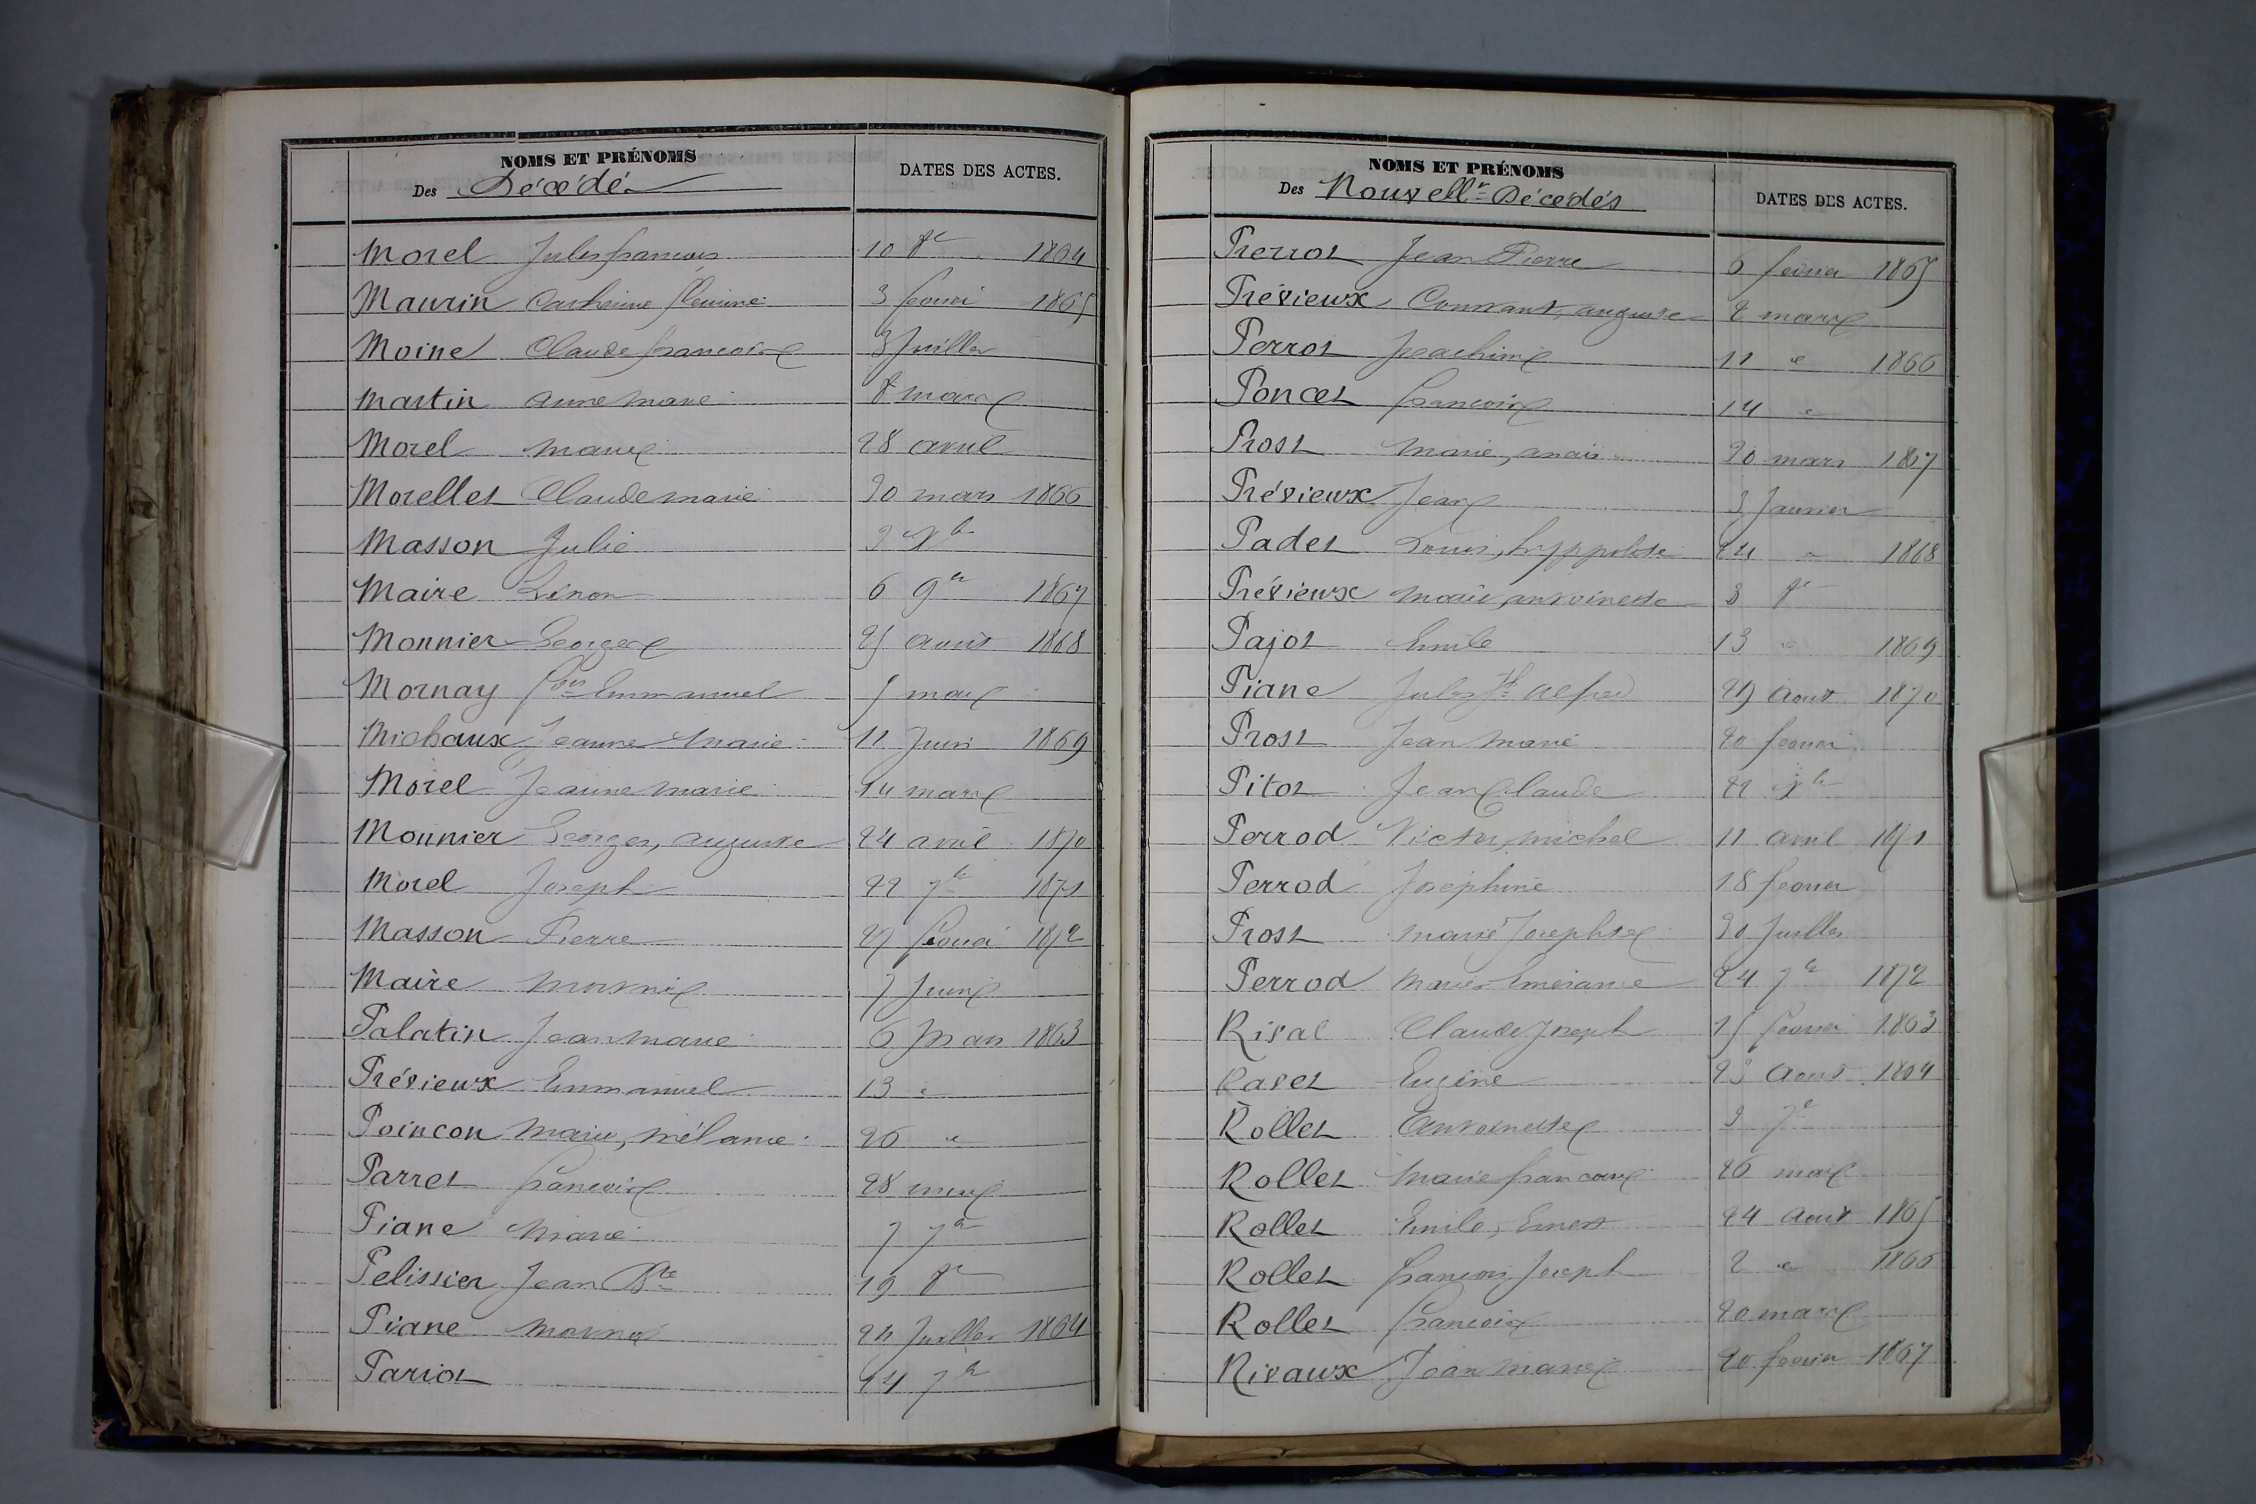 NOMS ET PRÉNOMS
Des Décédés
DATES DES ACTES.
Morel Jules françois 10 8e 1864
Maurin Catherine fleurine 3 fevrier 1865
Moine Claude françoise 3 Juillet
Martin anne Marie 8 mars
Morel marie 28 avril
Morellet Claude marie 30 mars 1866
Masson Julie 2 Xbre
Maire Zénon 6 9re 1867
Monnier George 25 aout 1868
Mornay fois Emmanuel 5 mars
Michaux Jeanne Marie 11 Juin 1869
Morel Jeanne Marie 14 mars
Monnier Georges, auguste 24 avril 1870
Morel Joseph 22 7bre 1871
Masson Pierre 27 fevrier 1872
Maire 7 Juin
Palatin Jean Marie 6 Mars 1863
Prévieux Emmanuel 13 "
Poincon Marie, mélanie 26 "
Parret françoise 28 mars
Piane Marie 7 7re
Pelissier Jean Bte 19 8e
Piane morné 24 Juillet 1864
Pariot 24 7re
NOMS ET PRÉNOMS
Des Nouvellt Décédés
DATES DES ACTES.
Perrot Jean Pierre 6 fevrier 1865
Prévieux Constant, auguste 2 mars
Perrot Joachim 11 " 1866
Poncet françois 14 "
Prost Marie, anaïs 20 mars 1867
Prévieux Jean 3 Janvier
Padet Louis, hyppolite 24 " 1868
Prévieux Marie antoinette 3 8e
Pajot Emile 13 " 1869
Piane Jules Jh alfred 29 Aout 1870
Prost Jean Marie 20 fevrier
Pitot Jean Claude 22 Xbre
Perrod Victor, michel 11 avril 1871
Perrod Joséphine 18 fevrier
Prost Marie Josephte 30 Juillet
Perrod Marie Emerance 24 7re 1872
Rival Claude Joseph 15 fevrier 1863
Ravet Eugène 23 Aout 1864
Rollet Antoinette 3 7e
Rollet Marie françoise 26 mars
Rollet Emile, Ernest 24 Aout 1865
Rollet françois Joseph 2 " 1866
Rollet françoise 20 mars
Rivaux Jean Marie 20 fevrier 1867